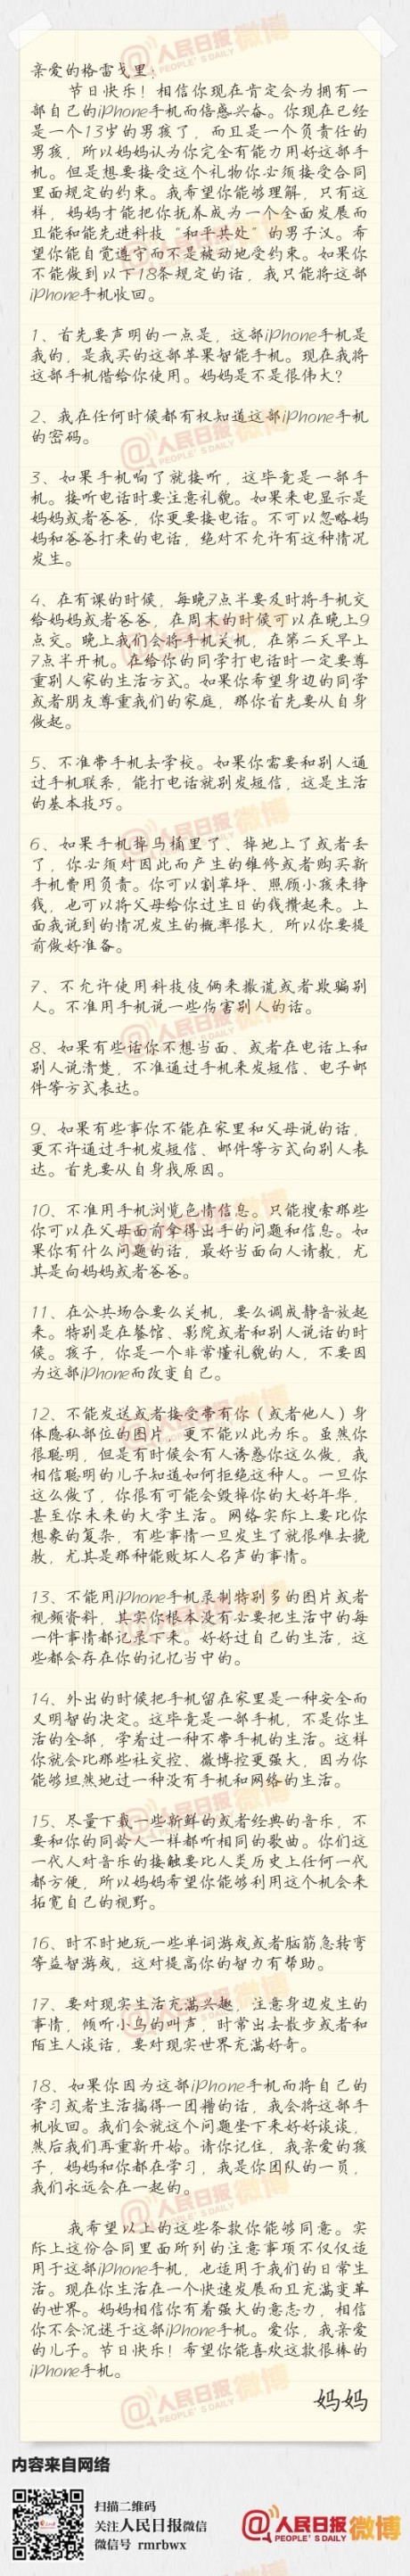 亲爱的格雷戈里：
节日快乐！相信你现在肯定会为拥有一
部自己的iPhone手机而倍感兴奋。你现在已经
是一个13岁的男孩了，而且是一个负责任的
男孩，所以妈妈认为你完全有能力用好这部手
机。但是想要接受这个礼物你必须接受合同
里面规定的约束。我希望你能够理解，只有这
样，妈妈才能把你抚养成为一个全面发展而
且能和能先进科技“和平共处”的男子汉。希
望你能自觉遵守而不是被动地受约束。如果你
不能做到以下18条规定的话，我只能将这部
iPhone手机收回。
1、首先要声明的一点是，这部iPhone手机是
我的，是我买的这部苹果智能手机。现在我将
这部手机借给你使用。妈妈是不是很伟大？
2、我在任何时候都有权知道这部iPhone手机
的密码。
3、如果手机响了就接听，这毕竟是一部手
机。接听电话时要注意礼貌。如果来电显示是
妈妈或者爸爸，你更要接电话。不可以忽略妈
妈和爸爸打来的电话，绝对不允许有这种情况
发生。
4、在有课的时候，每晚7点半要及时将手机交
给妈妈或者爸爸，在周末的时候可以在晚上9
点交。晚上我们会将手机关机，在第二天早上
7点半开机。在给你的同学打电话时一定要尊
重别人家的生活方式。如果你希望身边的同学
或者朋友尊重我们的家庭，那你首先要从自身
做起。
5、不准带手机去学校。如果你需要和别人通
过手机联系，能打电话就别发短信，这是生活
的基本技巧。
6、如果手机掉马桶里了、掉地上了或者丢
了，你必须对因此而产生的维修或者购买新
手机费用负责。你可以割草坪、照顾小孩来挣
钱，也可以将父母给你过生日的钱攒起来。上
面我说到的情况发生的概率很大，所以你要提
前做好准备。
7、不允许使用科技伎俩来撒谎或者欺骗别
人。不准用手机说一些伤害别人的话。
8、如果有些话你不想当面、或者在电话上和
别人说清楚，不准通过手机来发短信、电子邮
件等方式表达。
9、如果有些事你不能在家里和父母说的话，
更不许通过手机发短信、邮件等方式向别人表
达。首先要从自身我原因。
10、不准用手机浏览色情信息。只能搜索那些
你可以在父母面前拿得出手的问题和信息。如
果你有什么问题的话，最好当面向人请教，尤
其是向妈妈或者爸爸。
11、在公共场合要么关机，要么调成静音放起
来。特别是在餐馆、影院或者和别人说话的时
候。孩子，你是一个非常懂礼貌的人，不要因
为这部iPhone而改变自己。
12、不能发送或者接受带有你（或者他人）身
体隐私部位的图片，更不能以此为乐。虽然你
很聪明，但是有时候会有人诱惑你这么做，我
相信聪明的儿子知道如何拒绝这种人。一旦你
这么做了，你很有可能会毁掉你的大好年华，
甚至你未来的大学生活。网络实际上要比你
想象的复杂，有些事情一旦发生了就很难去挽
救，尤其是那种能败坏人名声的事情。
13、不能用iPhone手机录制特别多的图片或者
视频资料，其实你根本没有必要把生活中的每
一件事情都记录下来。好好过自己的生活，这
些都会存在你的记忆当中的。
14、外出的时候把手机留在家里是一种安全而
又明智的决定。这毕竟是一部手机，不是你生
活的全部，学着过一种不带手机的生活。这样
你就会比那些社交控、微博控更强大，因为你
能够坦然地过一种没有手机和网络的生活。
15、尽量下载一些新鲜的或者经典的音乐，不
要和你的同龄人一样都听相同的歌曲。你们这
一代人对音乐的接触要比人类历史上任何一代
都方便，所以妈妈希望你能够利用这个机会来
拓宽自己的视野。
16、时不时地玩一些单词游戏或者脑筋急转弯
等益智游戏，这对提高你的智力有帮助。
17、要对现实生活充满兴趣，注意身边发生的
事情，倾听小鸟的叫声，时常出去散步或者和
陌生人谈话，要对现实世界充满好奇。
18、如果你因为这部iPhone手机而将自己的
学习或者生活搞得一团糟的话，我会将这部手
机收回。我们会就这个问题坐下来好好谈谈，
然后我们再重新开始。请你记住，我亲爱的孩
子，妈妈和你都在学习，我是你团队的一员，
我们永远会在一起的。
我希望以上的这些条款你能够同意。实
际上这份合同里面所列的注意事项不仅仅适
用于这部iPhone手机，也适用于我们的日常生
活。现在你生活在一个快速发展而且充满变革
的世界。妈妈相信你有着强大的意志力，相信
你不会沉迷于这部iPhone手机。爱你，我亲爱
的儿子。节日快乐！希望你能喜欢这款很棒的
iPhone手机。
妈妈
内容来自网络
扫描二维码
关注人民日报微信
微信号 rmrbwx
@人民日报微博
PEOPLE'S DAILY